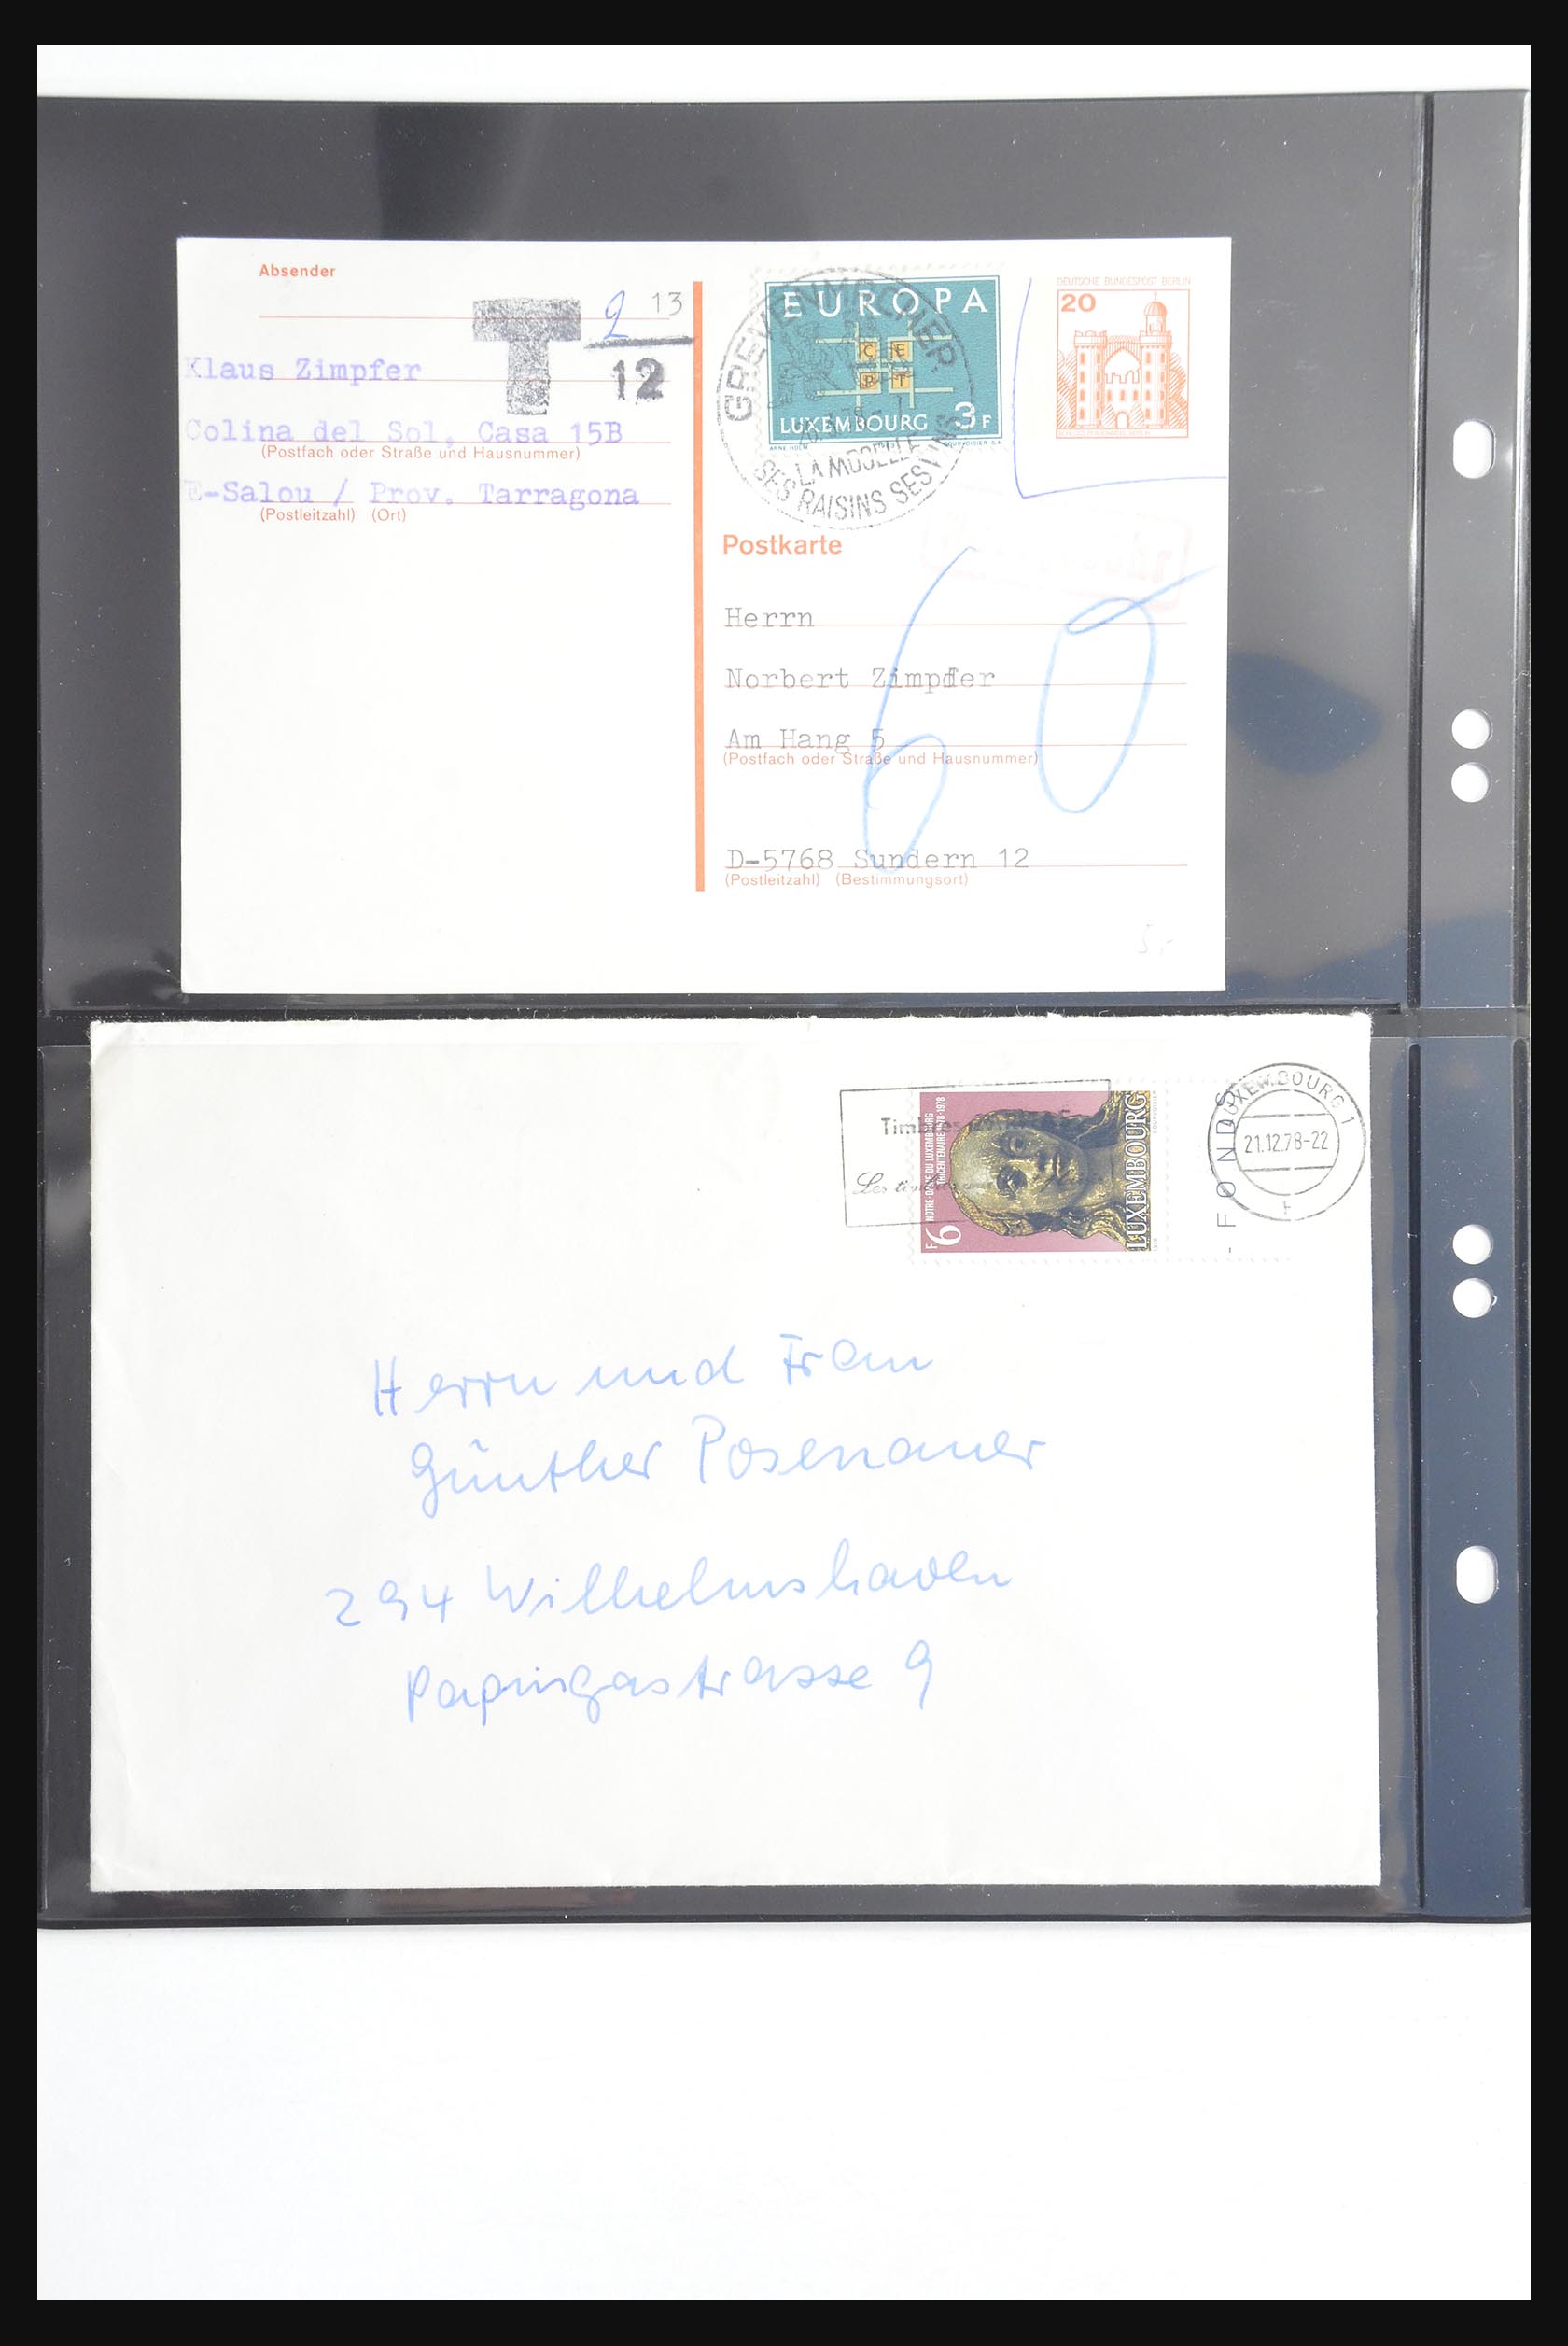 Absender
2 13
T 12
Klaus Zimpfer
Colina del Sol, Casa 15B
(Postfach oder Straße und Hausnummer)
E-Salou / Prov. Tarragona
(Postleitzahl) (Ort)
EUROPA
C E
P T
LUXEMBOURG 3F
GREVENMACHER
LA MOSELLE
SES RAISINS SES VINS
DEUTSCHE BUNDESPOST BERLIN
20
Postkarte
60
Herrn
Norbert Zimpfer
Am Hang 5
(Postfach oder Straße und Hausnummer)
D-5768 Sundern 12
(Postleitzahl) (Bestimmungsort)
Timbres
Les
NOTRE-DAME DU LUXEMBOURG
TRICENTENAIRE 1678-1978
F6
LUXEMBOURG
- FONDS
LUXEMBOURG 1
21.12.78-22
Herrn und Frau
Günther Posenauer
294 Wilhelmshaven
Papingastrasse 9